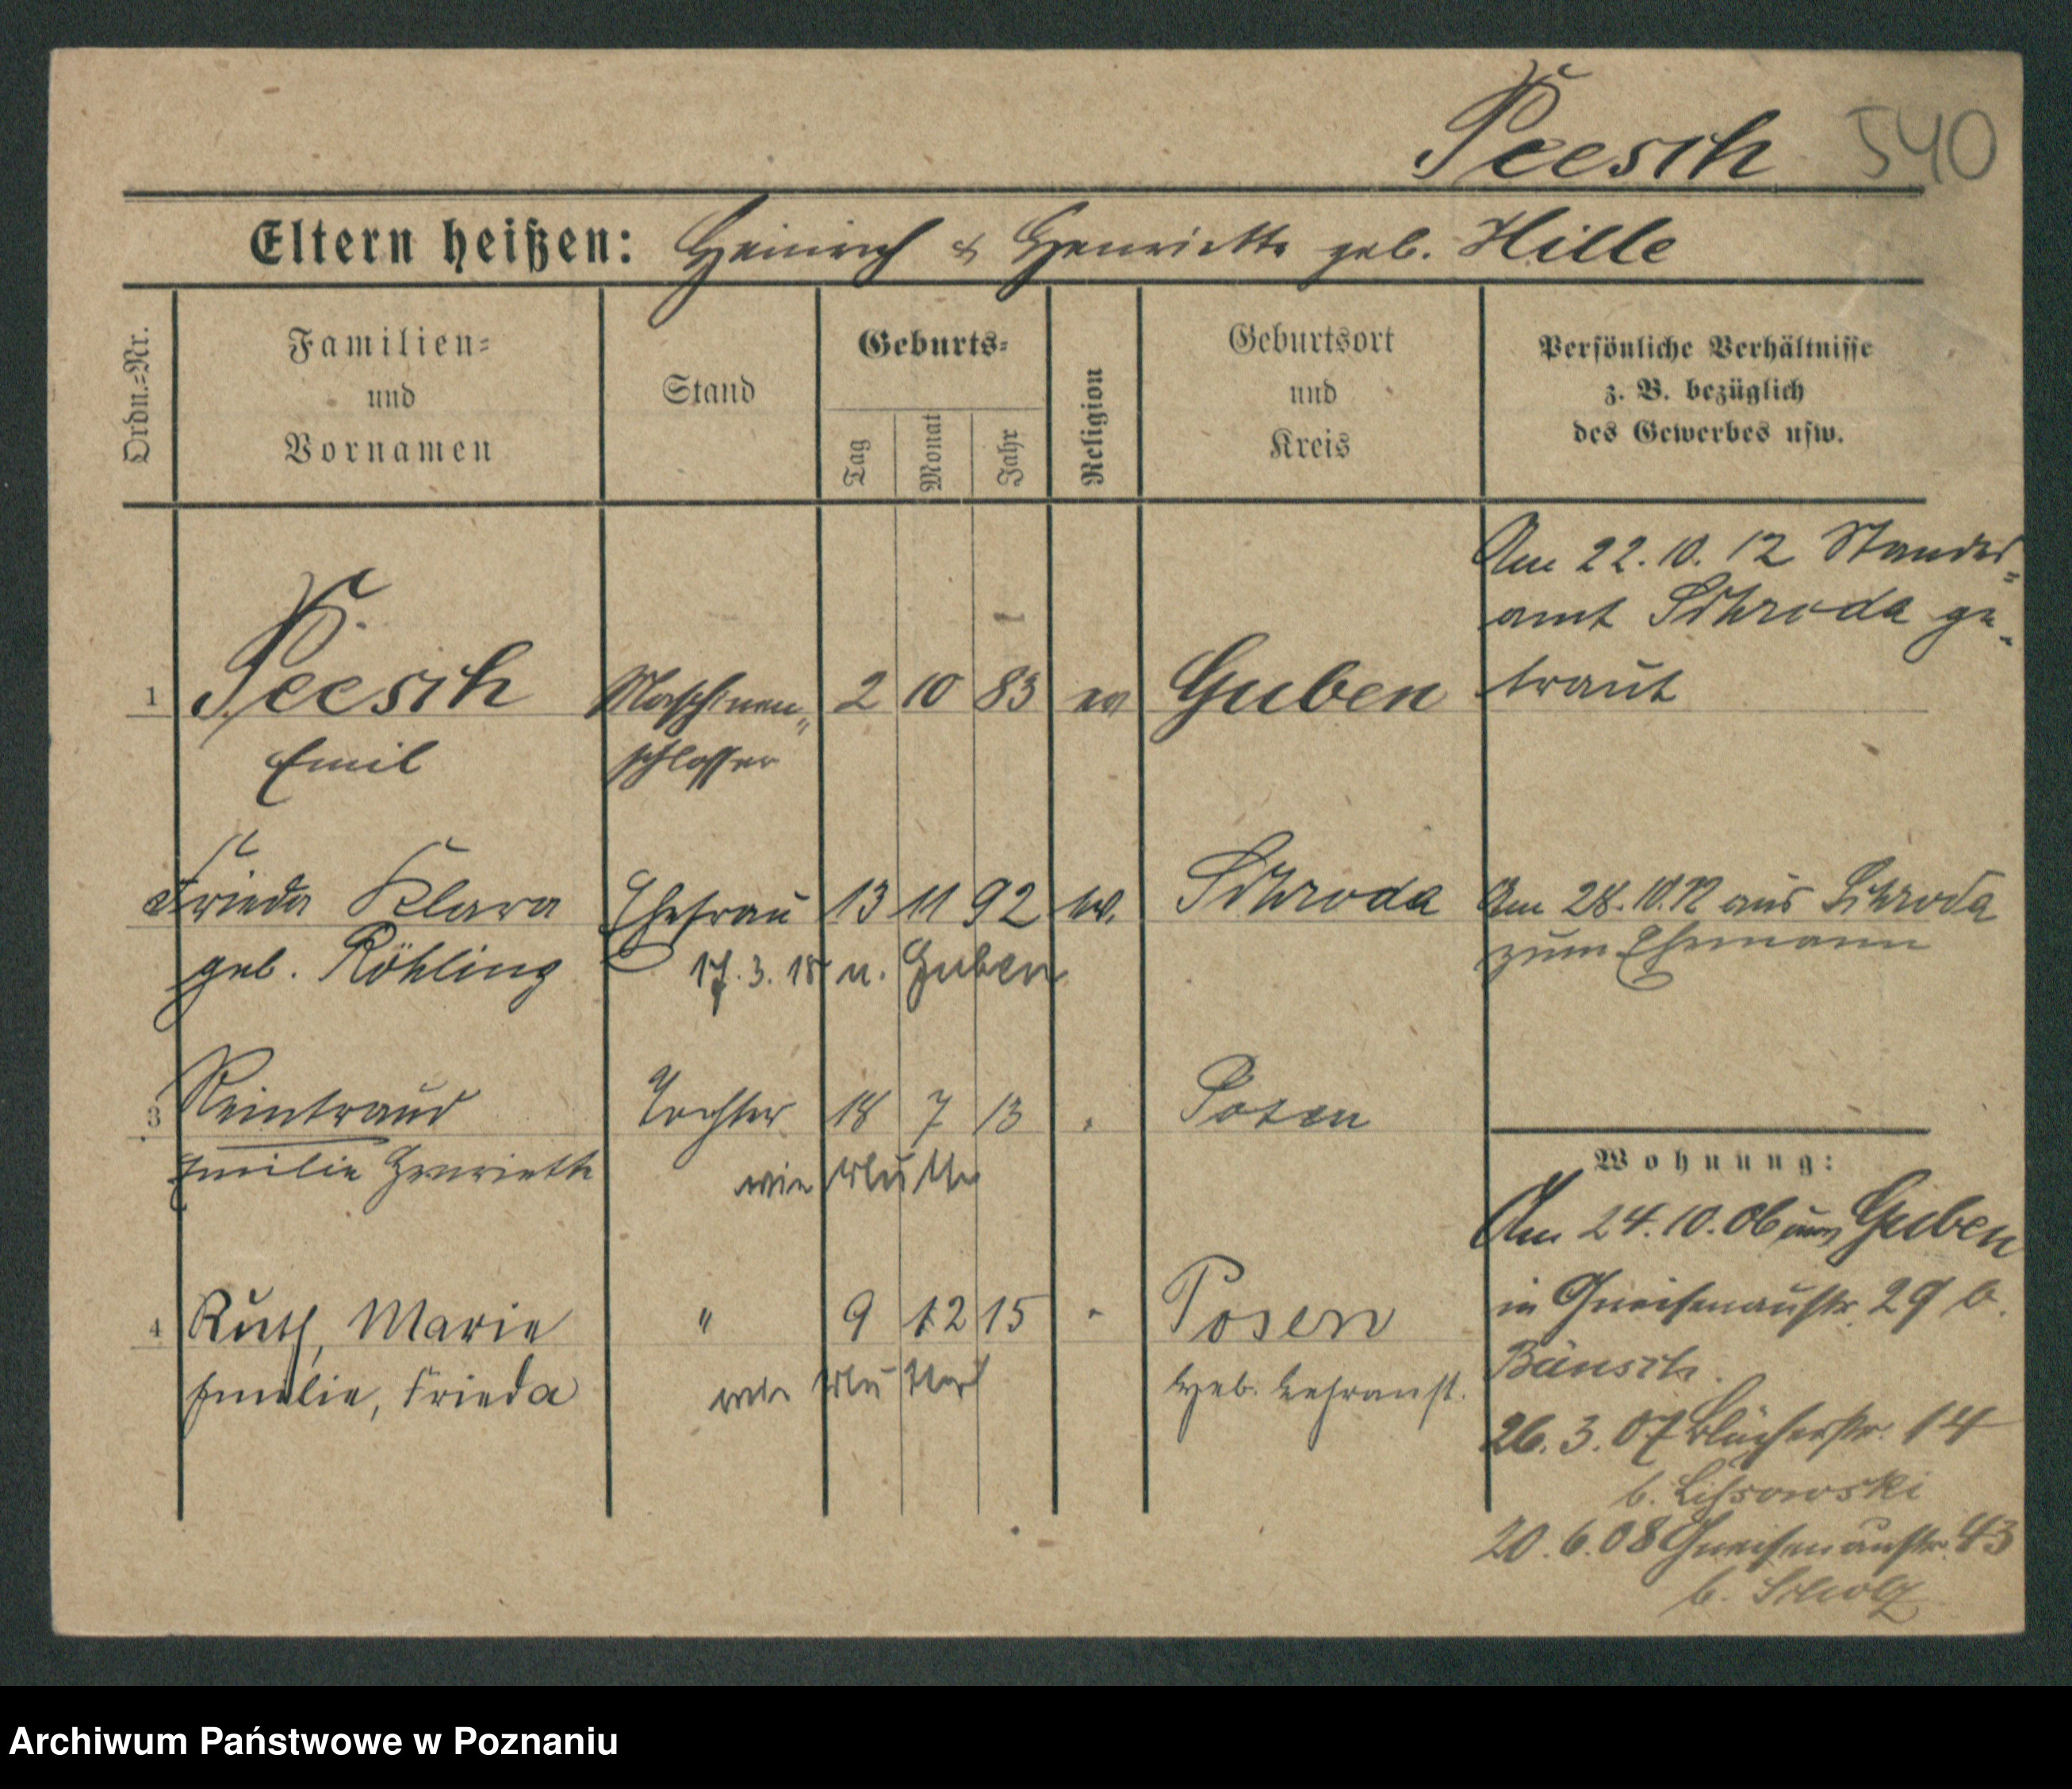 Peesch 540
Eltern heißen: Heinrich & Henriette geb. Hille
Ordn.=Nr.
Familien=
und
Vornamen
Stand
Geburts=
Tag
Monat
Jahr
Religion
Geburtsort
und
Kreis
Persönliche Verhältnisse
z. B. bezüglich
des Gewerbes usw.
Am 22.10.12 Standes=
amt Schroda ge=
traut
1 Peesch Maschinen„ 2 10 83 ev Guben
Emil schlosser
Frieda Klara Ehefrau 13 11 92 ev. Schroda Am 28.10.12 aus Schroda
geb. Röhling 17.3.18 n. Guben zum Ehemann
3 Reintraud Tochter 18 7 13 Posen
Emilie Henriette wie Mutter
Wohnung:
Am 24.10.06 aus Guben
in Gneisenaustr. 29 b.
4 Ruth, Marie " 9 12 15 " Posen
Bänsch.
Emilie, Frieda wie Mutter Heb. Lehranst.
26.3.07 Blücherstr. 14
b. Lissowski
20.6.08 Gneisenaustr. 43
b. Scholz
Archiwum Państwowe w Poznaniu